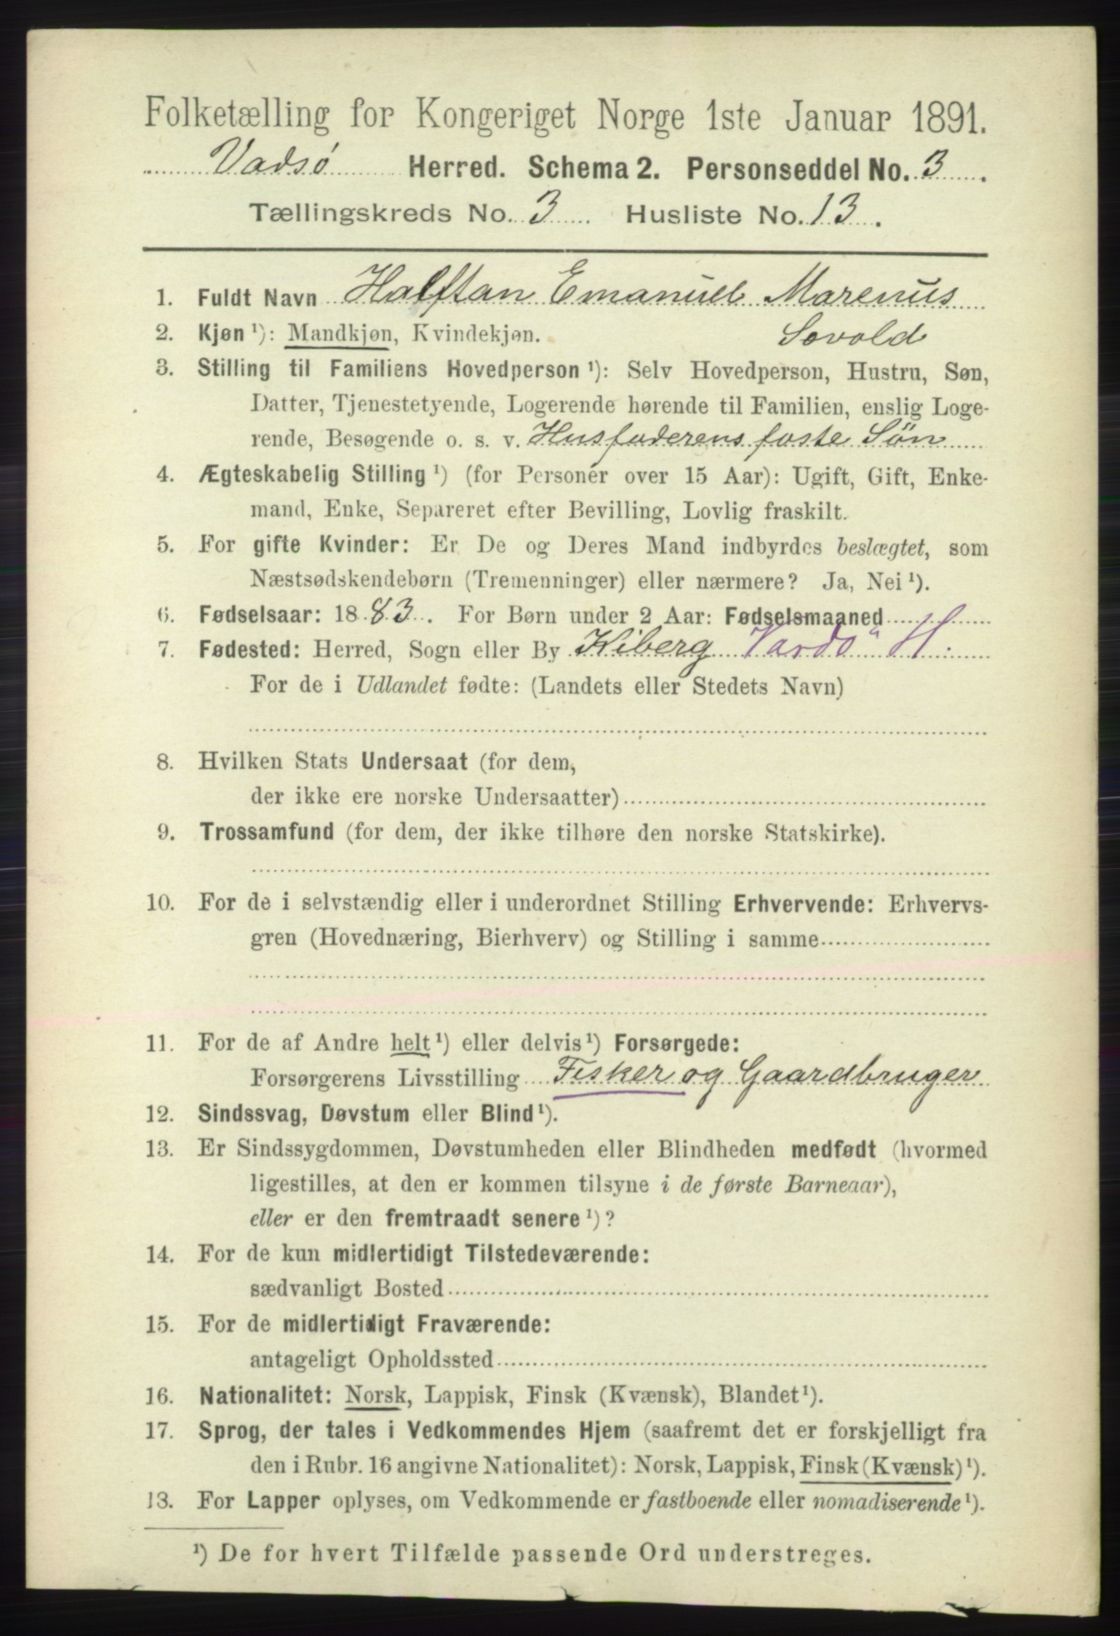 Folketælling for Kongeriget Norge 1ste Januar 1891.
Vadsø Herred. Schema 2. Personseddel No. 3.
Tællingskreds No. 3 Husliste No. 13.
1. Fuldt Navn Halftan Emanuel Marenus
Sovold
2. Kjøn ¹): Mandkjøn, Kvindekjøn.
3. Stilling til Familiens Hovedperson ¹): Selv Hovedperson, Hustru, Søn,
Datter, Tjenestetyende, Logerende hørende til Familien, enslig Loge-
rende, Besøgende o. s. v. Husfaderens foste Søn
4. Ægteskabelig Stilling ¹) (for Personer over 15 Aar): Ugift, Gift, Enke-
mand, Enke, Separeret efter Bevilling, Lovlig fraskilt.
5. For gifte Kvinder: Er De og Deres Mand indbyrdes beslægtet, som
Næstsødskendebørn (Tremenninger) eller nærmere? Ja, Nei ¹).
6. Fødselsaar: 1883. For Børn under 2 Aar: Fødselsmaaned
7. Fødested: Herred, Sogn eller By Kiberg Vardø H.
For de i Udlandet fødte: (Landets eller Stedets Navn)
8. Hvilken Stats Undersaat (for dem,
der ikke ere norske Undersaatter)
9. Trossamfund (for dem, der ikke tilhøre den norske Statskirke).
10. For de i selvstændig eller i underordnet Stilling Erhvervende: Erhvervs-
gren (Hovednæring, Bierhverv) og Stilling i samme
11. For de af Andre helt ¹) eller delvis ¹) Forsørgede:
Forsørgerens Livsstilling Fisker og Gaardbruger
12. Sindssvag, Døvstum eller Blind ¹).
13. Er Sindssygdommen, Døvstumheden eller Blindheden medfødt (hvormed
ligestilles, at den er kommen tilsyne i de første Barneaar),
eller er den fremtraadt senere ¹)?
14. For de kun midlertidigt Tilstedeværende:
sædvanligt Bosted
15. For de midlertidigt Fraværende:
antageligt Opholdssted
16. Nationalitet: Norsk, Lappisk, Finsk (Kvænsk), Blandet ¹).
17. Sprog, der tales i Vedkommendes Hjem (saafremt det er forskjelligt fra
den i Rubr. 16 angivne Nationalitet): Norsk, Lappisk, Finsk (Kvænsk) ¹).
13. For Lapper oplyses, om Vedkommende er fastboende eller nomadiserende ¹).
¹) De for hvert Tilfælde passende Ord understreges.